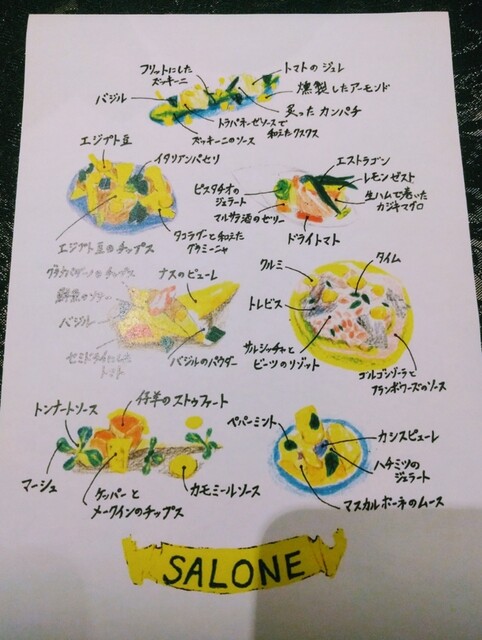 フリットにした
ズッキーニ
トマトのジュレ
燻製したアーモンド
バジル
炙ったカンパチ
トラパネーゼソースで
和えたクスクス
ズッキーニのソース
エジプト豆
イタリアンパセリ
エジプト豆のチップス
タコラグーと和えた
グラミーニャ
エストラゴン
レモンゼスト
ピスタチオの
ジェラート
生ハムで巻いた
カジキマグロ
マルサラ酒のゼリー
ドライトマト
グラナパダーノのチップス
ナスのピューレ
バジル
セミドライにした
トマト
バジルのパウダー
クルミ
タイム
トレビス
サルシッチャと
ビーツのリゾット
ゴルゴンゾーラと
フランボワーズのソース
トンナートソース
仔羊のストゥファート
マーシュ
ケッパーと
メークインのチップス
カモミールソース
ペパーミント
カシスピューレ
ハチミツの
ジェラート
マスカルポーネのムース
SALONE